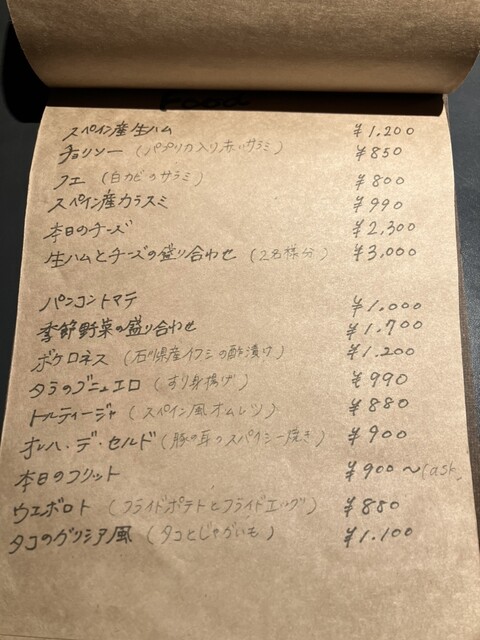 Food
スペイン産生ハム ¥1,200
チョリソー (パプリカ入り赤いサラミ) ¥850
フエ (白カビのサラミ) ¥800
スペイン産カラスミ ¥990
本日のチーズ ¥2,300
生ハムとチーズの盛り合わせ (2名様分) ¥3,000
パンコントマテ ¥1.000
季節野菜の盛り合わせ ¥1.700
ボケロネス (石川県産イワシの酢漬け) ¥1.200
タラのブニュエロ (すり身揚げ) ¥990
トルティージャ (スペイン風オムレツ) ¥880
オレハ・デ・セルド (豚の耳のスパイシー焼き) ¥900
本日のフリット ¥900〜(ask
ウエボロト (フライドポテトとフライドエッグ) ¥880
タコのガリシア風 (タコとじゃがいも) ¥1.100